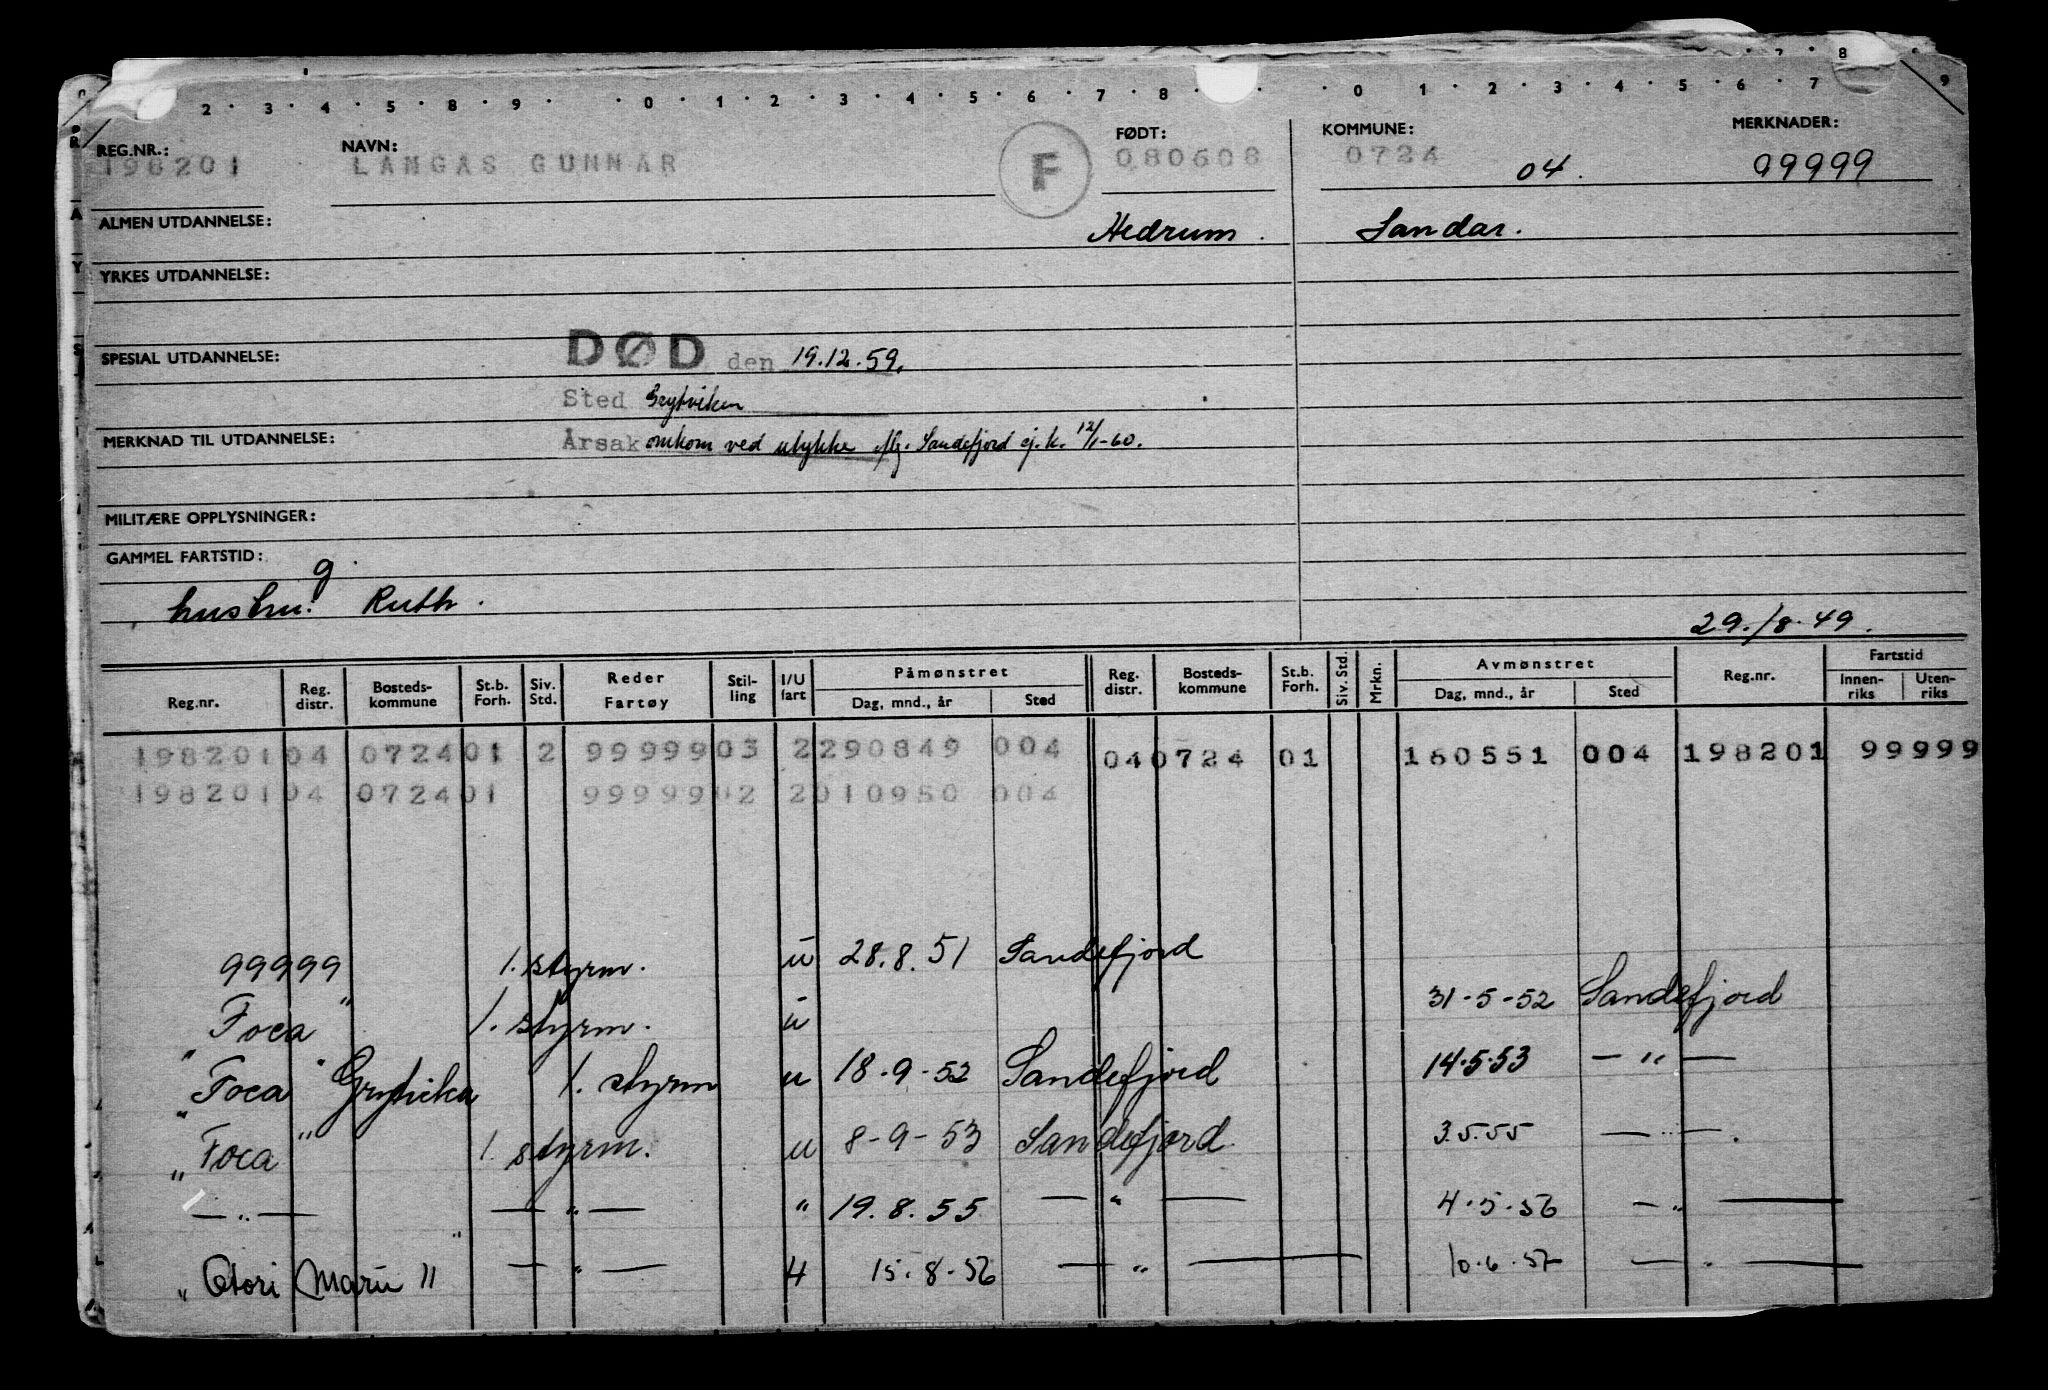 2 · 3 · 4 · 5 · 8 · 9 · · 0 · 1 · 2 · 3 · 4 · 5 · 6 · 7 · 8 · · · 0 · 1 · 2 · 3 · 4 · 5 · 6 · 7 9
REG.NR.: NAVN: FØDT: KOMMUNE: MERKNADER:
198201 LANGAS GUNNAR F 080608 0724 04. 09999
ALMEN UTDANNELSE: Hedrum. Sandar.
YRKES UTDANNELSE:
SPESIAL UTDANNELSE: DØD den 19.12.59.
Sted Grytviken
MERKNAD TIL UTDANNELSE: Årsak omkom ved ulykke Sandefjord sj.k. 12/1-60.
MILITÆRE OPPLYSNINGER:
GAMMEL FARTSTID:
g.
hustru: Ruth. 29./8.49.
Reg.nr. Reg. distr. Bosteds-kommune St.b. Forh. Siv. Std. Reder Fartøy Stil-ling I/U fart Påmønstret Dag, mnd., år Sted Reg. distr. Bosteds-kommune St.b. Forh. Siv. Std. Mrkn. Avmønstret Dag, mnd., år Sted Reg.nr. Fartstid Innen-riks Uten-riks
198201 04 0724 01 2 99999 03 2 290849 004 04 0724 01 160551 004 198201 99999
198201 04 0724 01 99999 02 2 010950 004
99999 1. styrm. u 28.8.51 Sandefjord
"Foca" 1. styrm. u 31-5-52 Sandefjord
"Foca" Grytvika 1. styrm u 18-9-52 Sandefjord 14.5.53 — " —
"Foca" 1. styrm. u 8-9-53 Sandefjord 3.5.55 — " —.
— " — — " — " 19.8.55 — " — 4.5.56 — " —
"Otori Maru" — " — 4 15.8.56 — " — 10.6.57 — " —